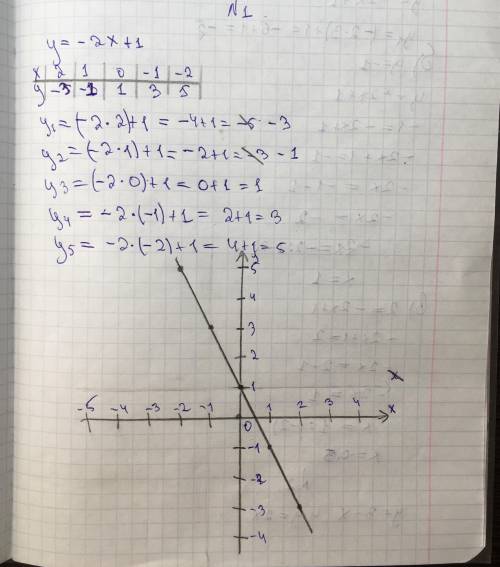 N1.
y = -2x+1
x 2 1 0 -1 -2
y -3 -1 1 3 5
y1 = (-2·2)+1 = -4+1 = -5 -3
y2 = (-2·1)+1 = -2+1 = -3 -1
y3 = (-2·0)+1 = 0+1 = 1
y4 = -2·(-1)+1 = 2+1 = 3
y5 = -2·(-2)+1 = 4+1 = 5
5
4
3
2
1 x
-5 -4 -3 -2 -1 0 1 2 3 4 x
-1
-2
-3
-4